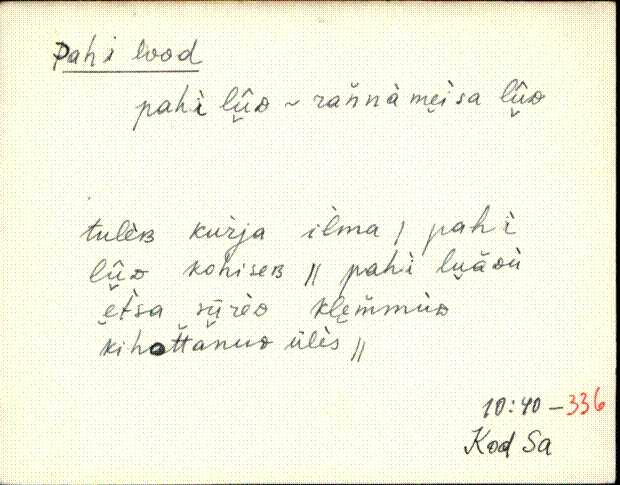 Pahi lood
pahì lū̬̂ᴅ ~ rañ̆nà mẹìsa lū̬̂ᴅ
tulèʙ kuŕja ìlma / pahì
lū̬̂ᴅ kohiseʙ // pahì lu̬āᴅù
ẹt̀sa sū̬rèᴅ klẹm̆mùᴅ
kihottanuᴅ ülès //
10:40 – 336
Kod Sa